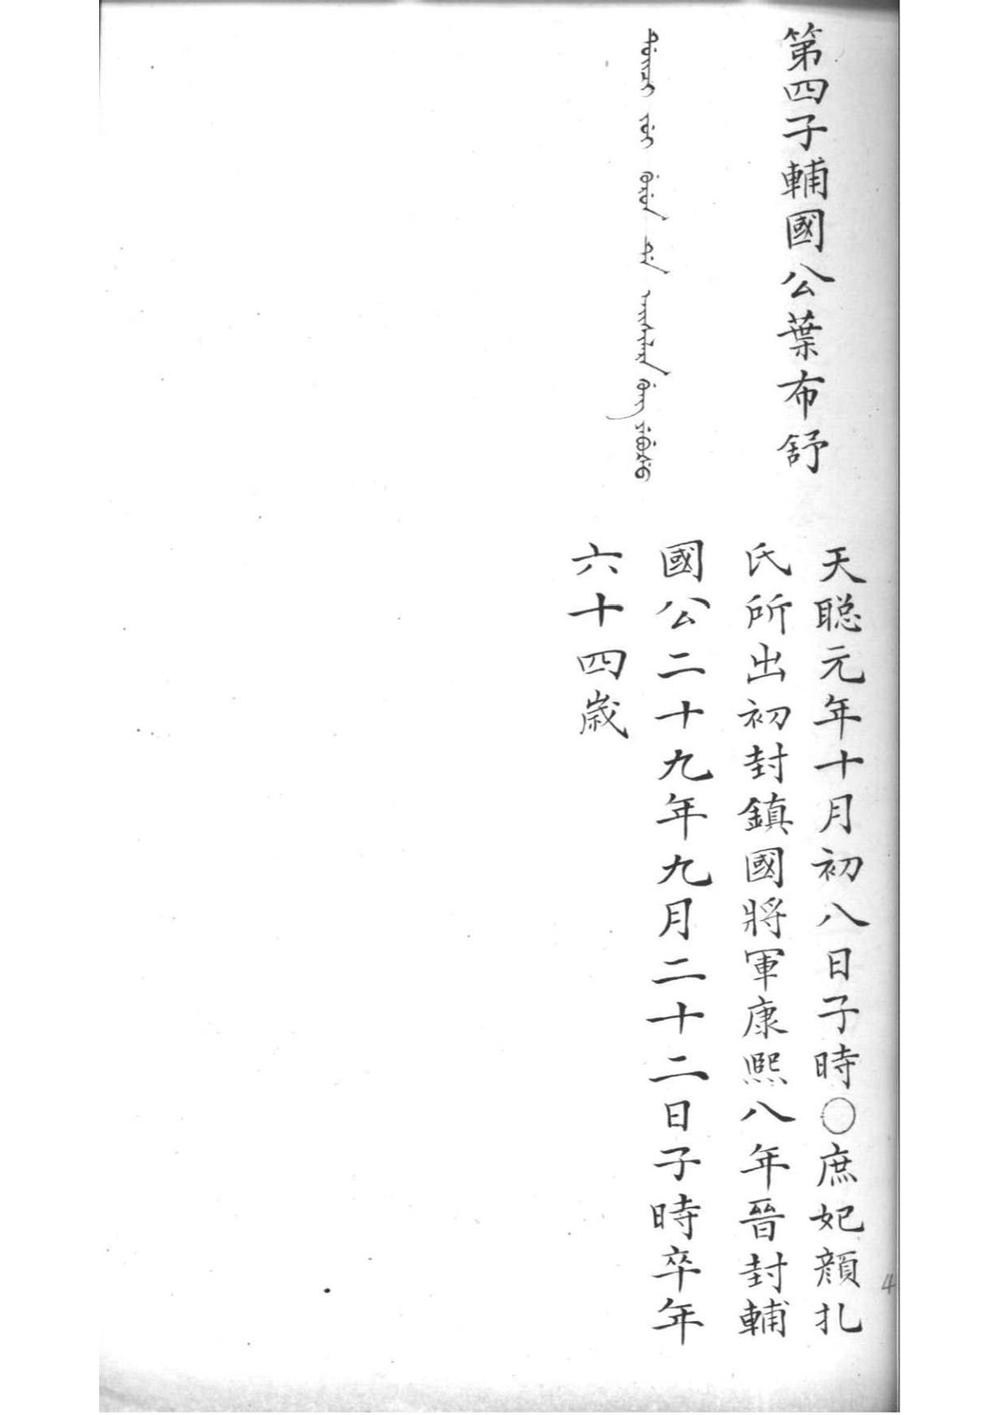 第四子輔國公葉布舒
天聡元年十月初八日子時○庶妃顔扎
氏所出初封鎮國將軍康熙八年晉封輔
國公二十九年九月二十二日子時卒年
六十四歲
4